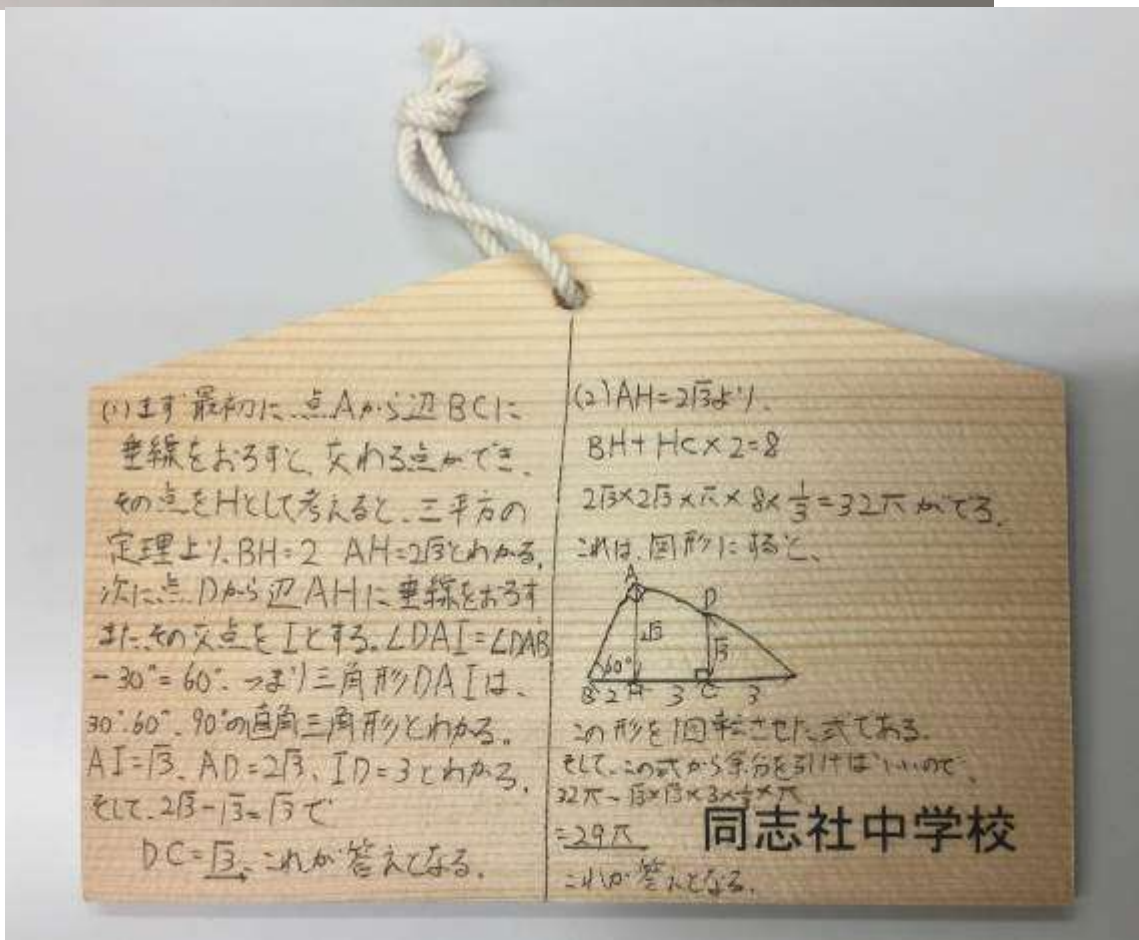 (1)まず最初に、点Aから辺BCに
垂線をおろすと、交わる点ができ、
その点をHとして考えると、三平方の
定理より、BH=2 AH=2√3とわかる。
次に点Dから辺AHに垂線をおろす
またその交点をIとする。∠DAI=∠DAB
-30°=60°、つまり三角形DAIは、
30°.60°.90°の直角三角形とわかる。
AI=√3、AD=2√3、ID=3とわかる。
そして、2√3-√3=√3で
DC=√3、これが答えとなる。
(2)AH=2√3より、
BH+HC×2=8
2√3×2√3×π×8×1/3=32πがでる。
これは、図形にすると、
A
D
2√3
√3
60°
B 2 H 3 C 3
この形を1回転させた式である。
そして、この式から余分を引けばいいので、
32π-√3×√3×3×1/3×π
=29π
これが答えとなる。
同志社中学校